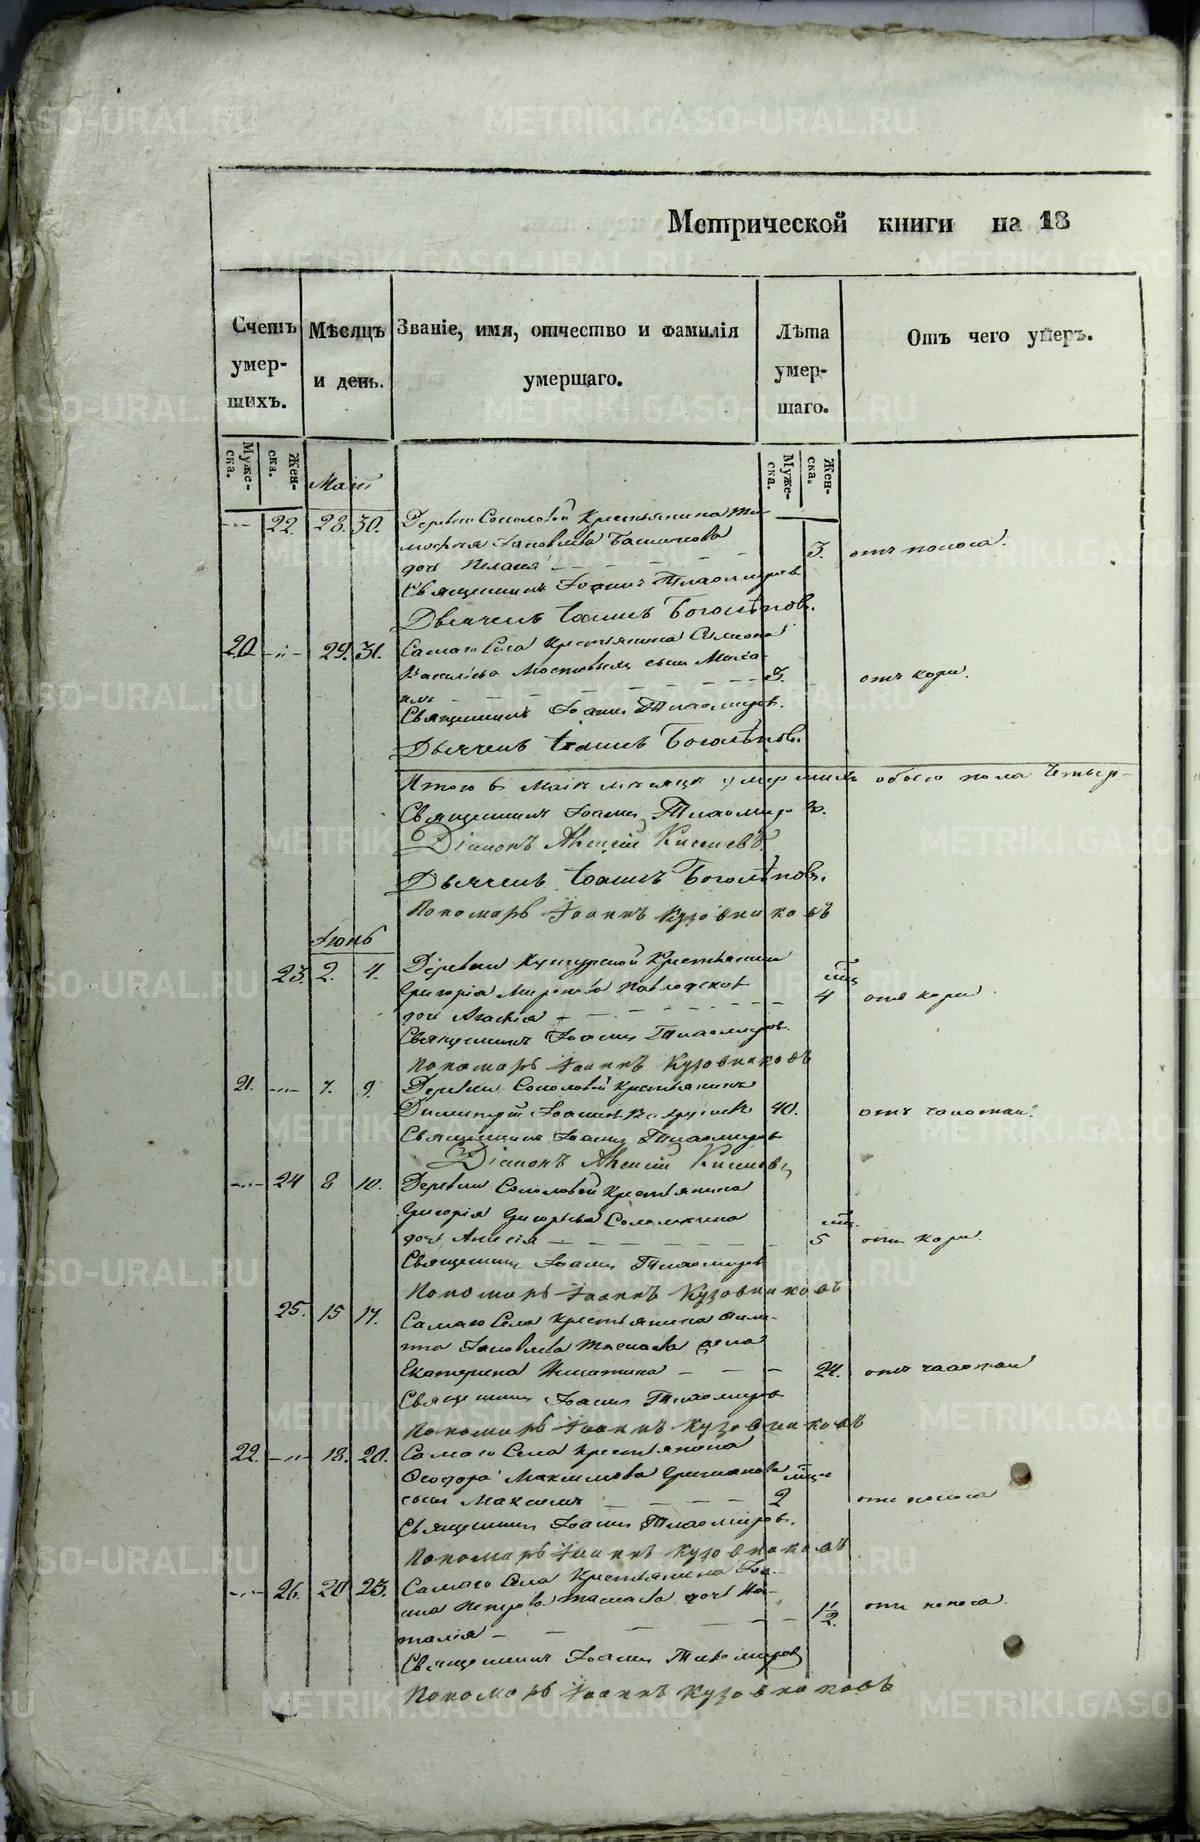 Метрической книги на 18
Счетъ умер-шихъ.
Мѣсяцъ и день.
Званіе, имя, отчество и фамилія умершаго.
Лѣта умер-шаго.
Отъ чего умеръ.
Муже-ска.
Жен-ска.
Муже-ска.
Жен-ска.
Маій
22. 28. 30. Деревни Соколовой Крестьянина Ти-
мофея Яковлева
дочь Пелагія 3. отъ поноса.
Священникъ Іоаннъ Тихомировъ
Дьячекъ Іоаннъ Боголѣповъ.
20. 29. 31. Самаго Села Крестьянина Симиона
Васильева сынъ Миха-
илъ 3. отъ кори.
Священникъ Іоаннъ Тихомировъ.
Дьячекъ Іоаннъ Боголѣповъ.
Итого въ Маіи мѣсяцѣ умершихъ обоего пола четыр-
Священникъ Іоаннъ Тихомировъ.
Діаконъ Алексій Киселевъ
Дьячекъ Іоаннъ Боголѣповъ.
Пономарь Іоаннъ Кузовниковъ
Іюнь
23. 2. 4. Деревни Кунгурской Крестьянина
Григорія Миронова
дочь Агафія 4 мц отъ кори
Священникъ Іоаннъ Тихомировъ.
Пономарь Іоаннъ Кузовниковъ
21. 7. 9. Деревни Соколовой Крестьянинъ
Димитрій Іоанновъ 40. отъ чахотки.
Священникъ Іоаннъ Тихомировъ
Діаконъ Алексій Киселевъ
24 8 10. Деревни Соколовой Крестьянина
Григорія Григорьева Соломеина
дочь Анисія 5 мц. отъ кори.
Священникъ Іоаннъ Тихомировъ
Пономарь Іоаннъ Кузовниковъ
25. 15 17. Самаго Села Крестьянина Фили-
па Яковлева жена
Екатерина Никитина 24. отъ чахотки
Священникъ Іоаннъ Тихомировъ
Пономарь Іоаннъ Кузовниковъ
22. 18. 20. Самаго Села Крестьянина
Феодора Максимова мц.
сынъ Максимъ 2 отъ поноса
Священникъ Іоаннъ Тихомировъ.
Пономарь Іоаннъ Кузовниковъ
26. 20 23. Самаго Села Крестьянина Іоа-
на Петрова дочь На-
талія 1 1/2. отъ поноса.
Священникъ Іоаннъ Тихомировъ
Пономарь Іоаннъ Кузовниковъ
METRIKI.GASO-URAL.RU